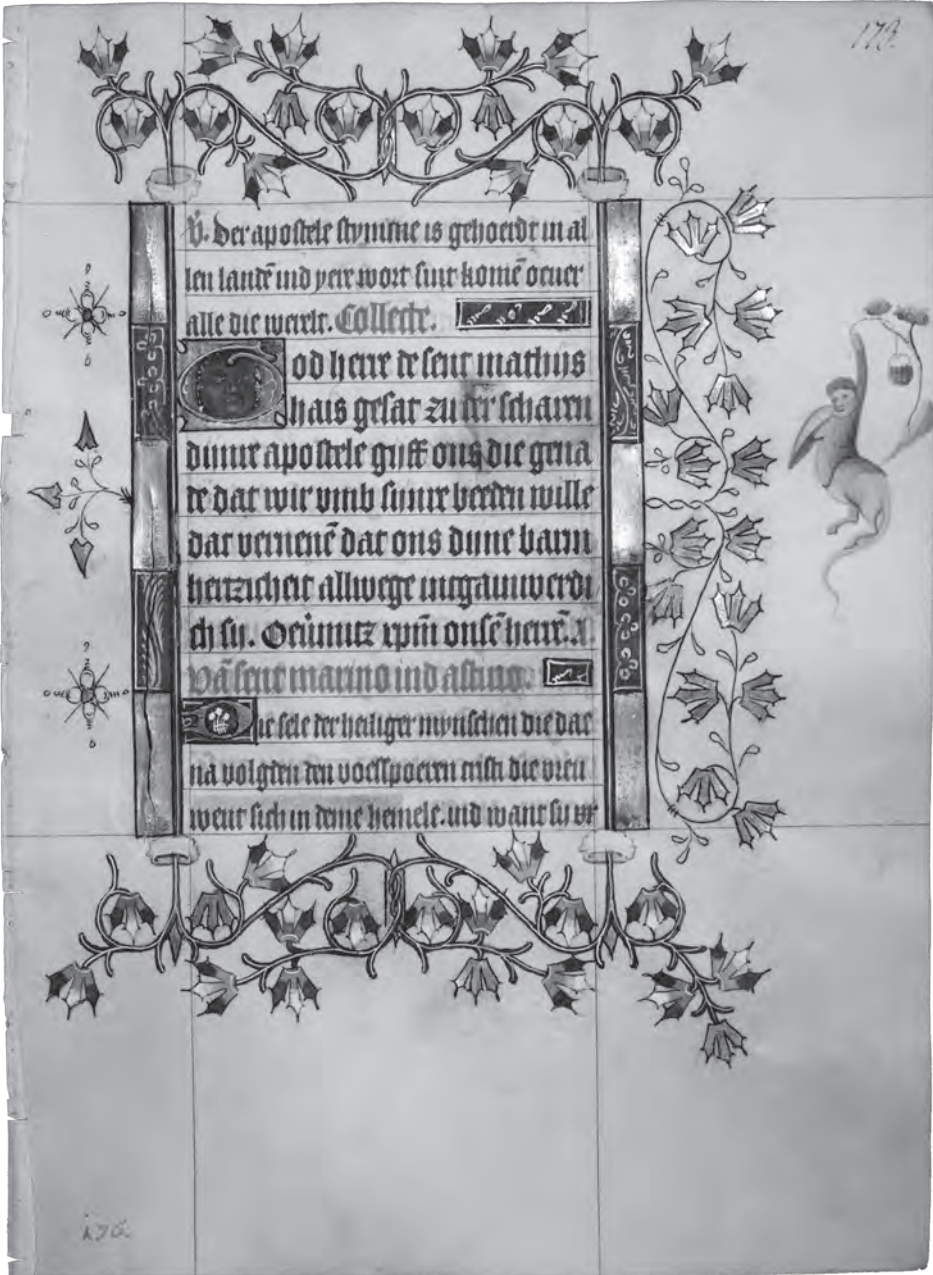 173.
V. Der apostele stymme is gehoerdt in al
len landē ind yere wort sint komē oeuer
alle die werelt. Collecte.
God herre de sent mathijs
hais gesat zu der scharen
dinre apostele guff ons die gena
de dat wir vmb sinre beeden wille
dat vernenē dat ons dyne barm
hertzicheit allwege
ch sij. Ouermitz xpm onsē herrē. A
Vā sent
Die sele der heiliger mynschen die dae
na volgden den voesspoeren cristi die vreu
went sich in deme hemele. ind want sij vr